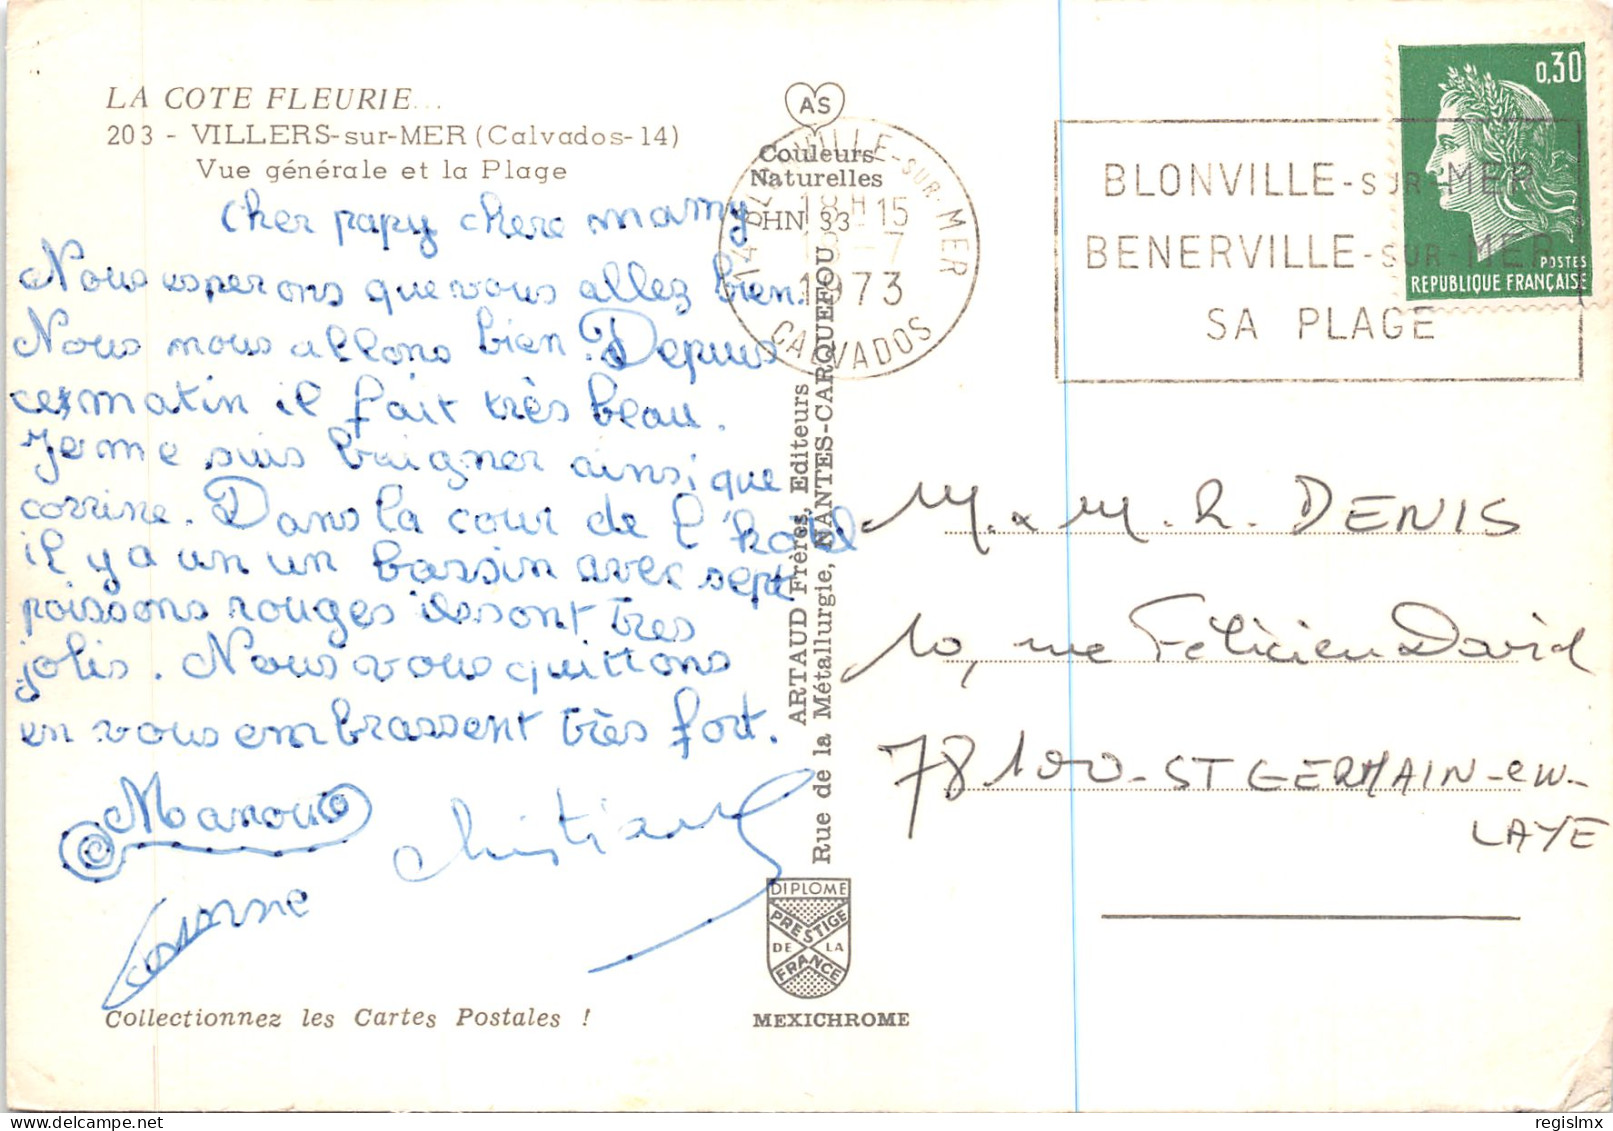 LA COTE FLEURIE...
203 - VILLERS-sur-MER (Calvados-14)
Vue générale et la Plage
cher papy chere mamy
Nous esperons que vous allez bien.
Nous nous allons bien. Depuis
ce matin il fait très beau.
Je me suis baigner ainsi que
corrine. Dans la cour de l'hotel
il y a un un bassin avec sept
poissons rouges ils sont tres
jolis. Nous vous quittons
en vous embrassent très fort.
Manou
Christiane
Corinne
Collectionnez les Cartes Postales !
AS
Couleurs
Naturelles
PHN. 33
ARTAUD Frères, Editeurs
Rue de la Métallurgie, NANTES-CARQUEFOU
DIPLOME
PRESTIGE
DE LA
FRANCE
MEXICHROME
14 VILLE-SUR-MER
18H15
-7
1973
CALVADOS
BLONVILLE-SUR-MER
BENERVILLE-SUR-MER
SA PLAGE
0,30
POSTES
REPUBLIQUE FRANÇAISE
M. & M. R. DENIS
10, rue Félicien David
78100-ST GERMAIN-en-
LAYE
delcampe.net
regislmx